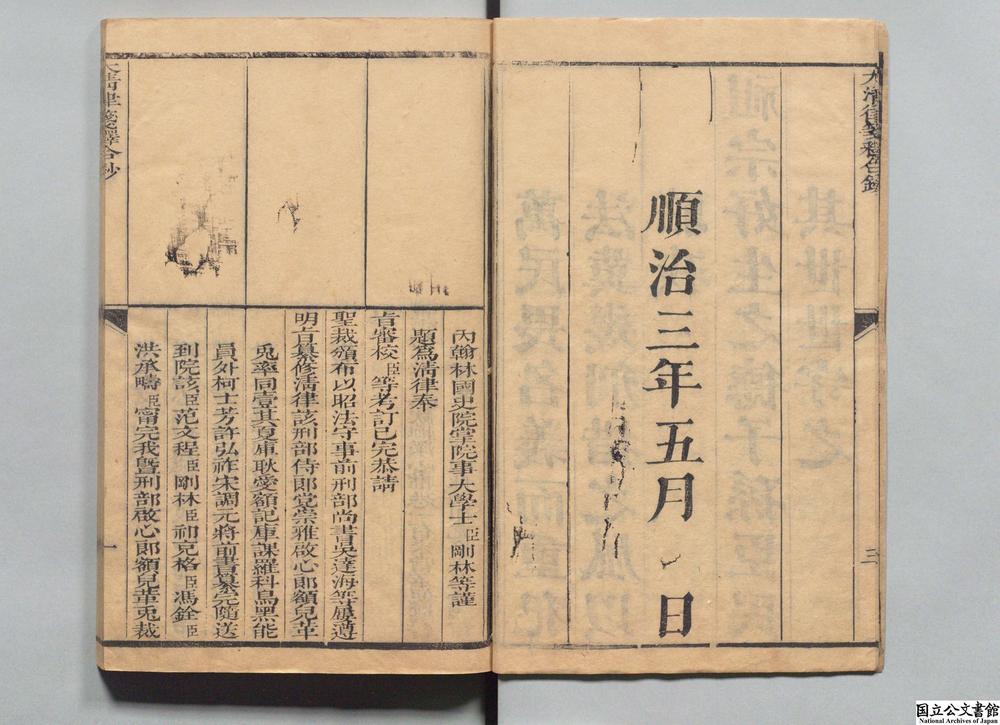 順治三年五月 日
三
內翰林國史院掌院事大學士臣剛林等謹
題爲淸律奉
旨審校臣等考訂已完恭請
聖裁頒布以昭法守事前刑部尚書吳達海等屢遵
明旨纂修淸律該刑部侍郎党崇雅啟心郎額兒革
兎率同壹其夏庫耿愛額記庫課羅科鳥黑能
員外柯士芳許弘祚宋調元將前書纂完隨送
到院該臣范文程臣剛林臣祁克格臣馮銓臣
洪承疇臣甯完我曁刑部啟心郎額兒革兎裁
大淸律箋釋合鈔
一
国立公文書館
National Archives of Japan